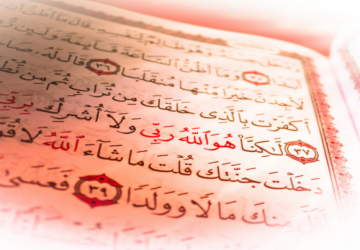 أَبَدًا ۝٣٥ وَمَا أَظُنُّ السَّاعَةَ قَائِمَةً وَلَئِن
لَأَجِدَنَّ خَيْرًا مِّنْهَا مُنقَلَبًا ۝٣٦ قَالَ لَهُ
أَكَفَرْتَ بِالَّذِي خَلَقَكَ مِن تُرَابٍ ثُمَّ مِن
۝٣٧ لَّٰكِنَّا هُوَ اللَّهُ رَبِّي وَلَا أُشْرِكُ بِرَبِّي
دَخَلْتَ جَنَّتَكَ قُلْتَ مَا شَاءَ اللَّهُ لَا
مِنكَ مَالًا وَوَلَدًا ۝٣٩ فَعَسَىٰ